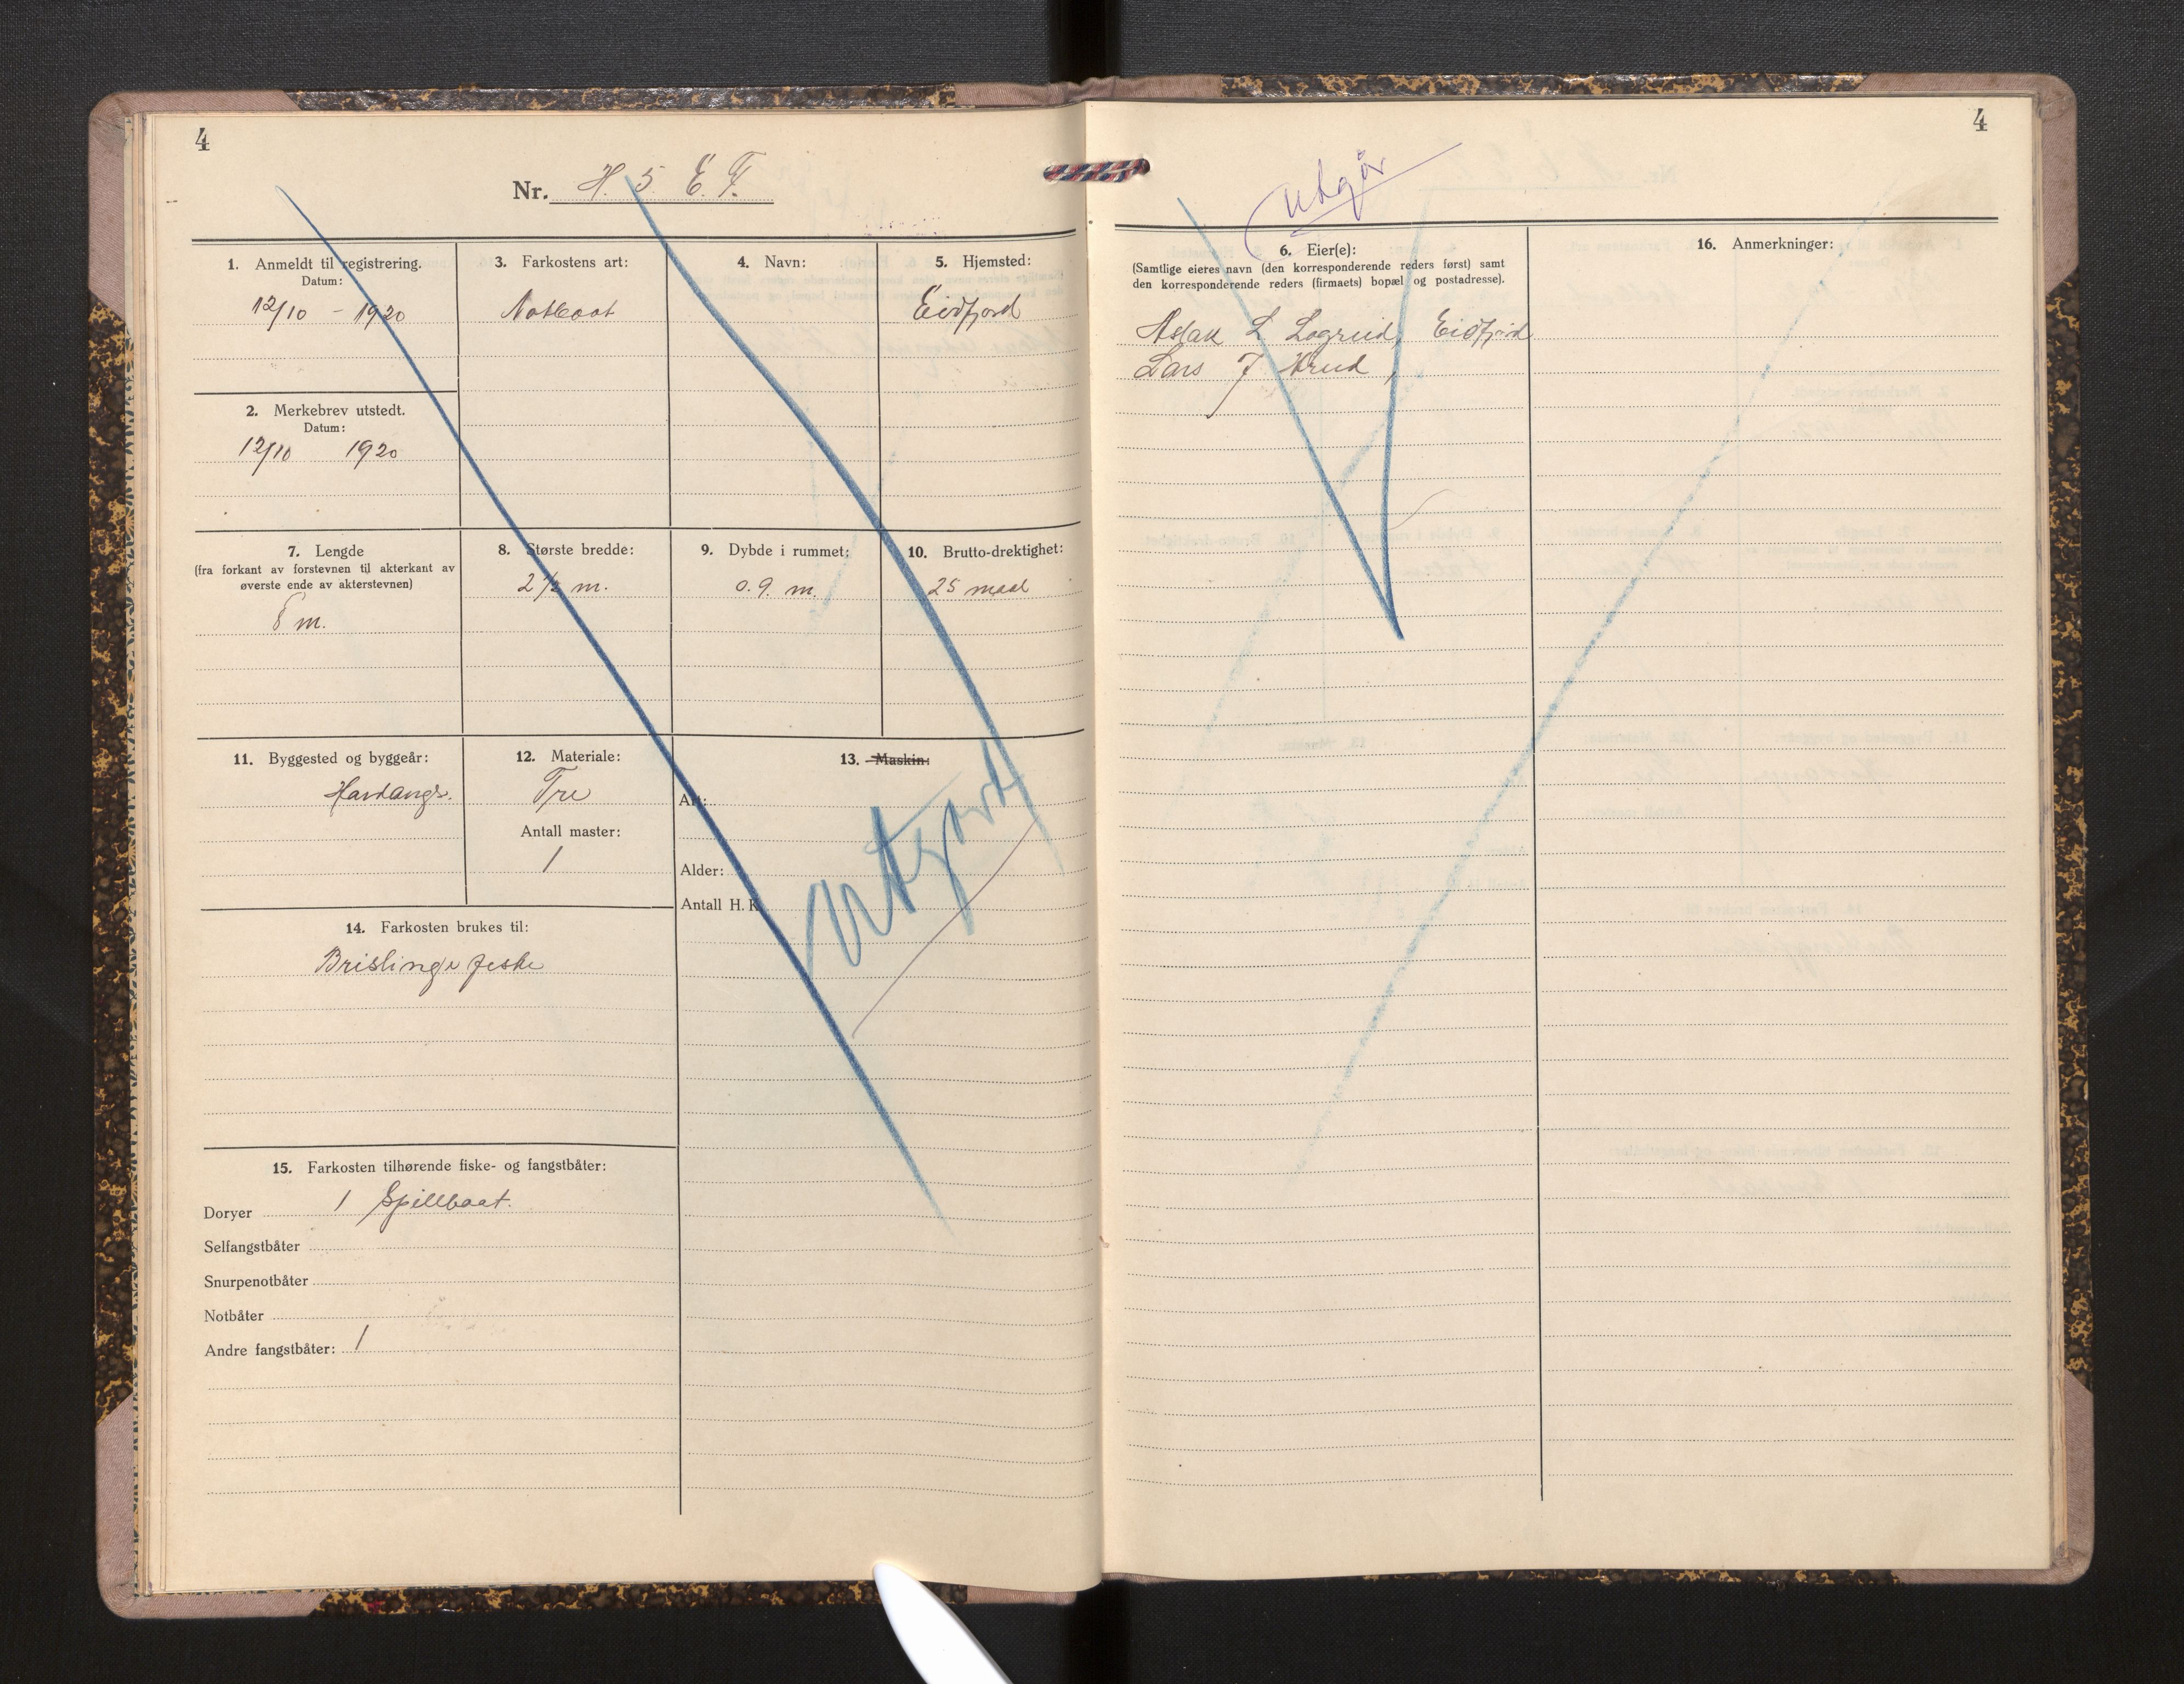 4
Nr. H. 5. E. F.
1. Anmeldt til registrering.
Datum:
12/10 - 1920
3. Farkostens art:
Notbaat
4. Navn:
5. Hjemsted:
Eidfjord
2. Merkebrev utstedt.
Datum:
12/10 1920
7. Lengde
(fra forkant av forstevnen til akterkant av
øverste ende av akterstevnen)
8 m.
8. Største bredde:
2 1/2 m.
9. Dybde i rummet:
0.9. m.
10. Brutto-drektighet:
25 maal
11. Byggested og byggeår:
Hardange.
12. Materiale:
Tre
Antall master:
1
13. Maskin:
Art:
Alder:
Antall H. K.
Utgjort
14. Farkosten brukes til:
Brislinge feske
15. Farkosten tilhørende fiske- og fangstbåter:
Doryer 1 Spillbaat.
Selfangstbåter
Snurpenotbåter
Notbåter
Andre fangstbåter: 1
4
Utgår
6. Eier(e):
(Samtlige eieres navn (den korresponderende reders først) samt
den korresponderende reders (firmaets) bopæl og postadresse).
Aslak L Lægreid, Eidfjord
Lars J
16. Anmerkninger: